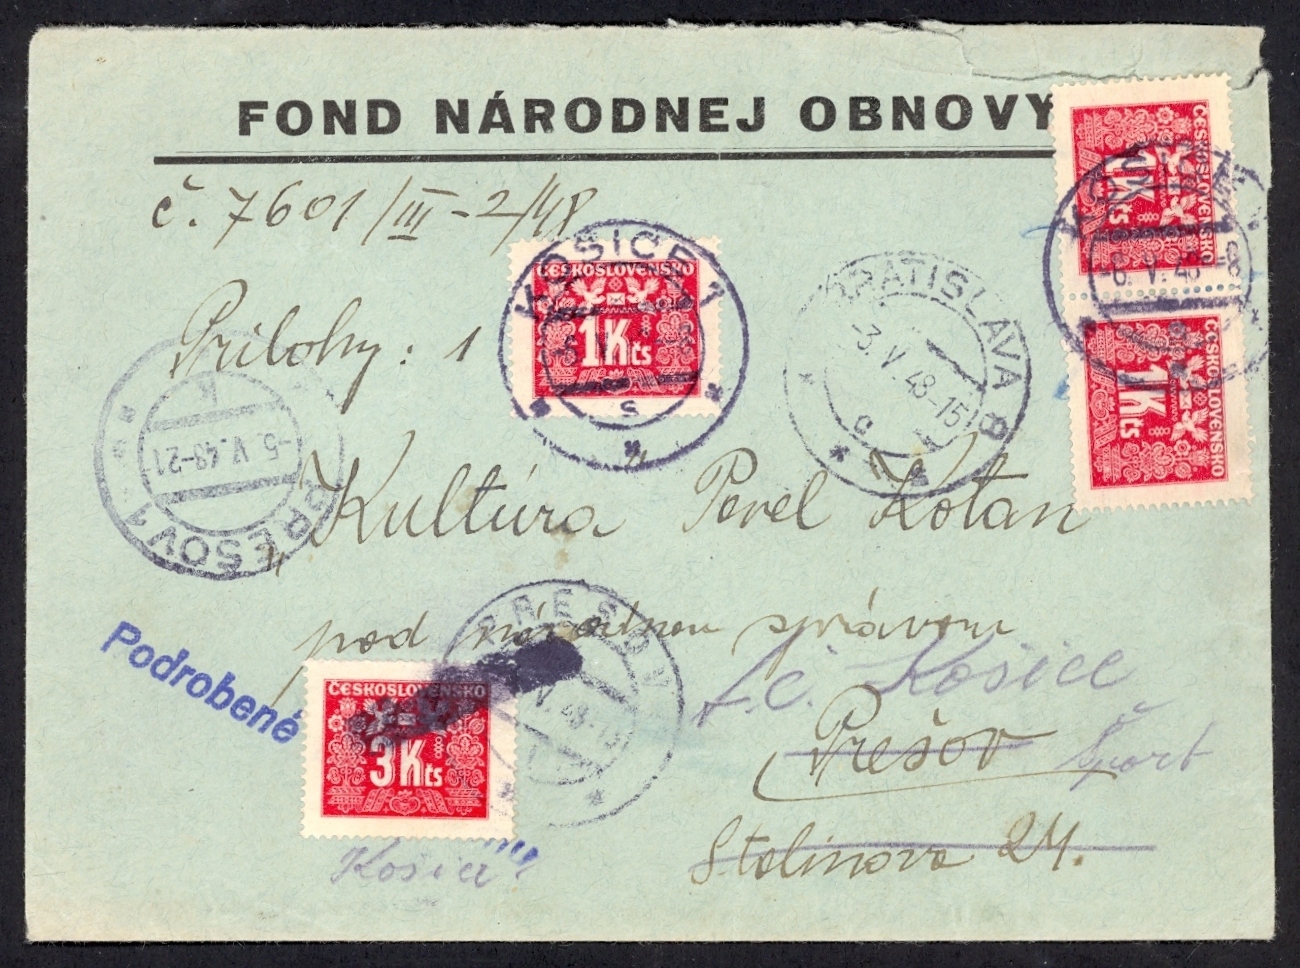 FOND NÁRODNEJ OBNOVY
č. 7601/III-2/48
ČESKOSLOVENSKO
1 Kčs
ČESKOSLOVENSKO
1 Kčs
KOŠICE 1
-6. V. 48 -8
s
ČESKOSLOVENSKO
1 Kčs
BRATISLAVA 8
-3. V. 48-15
-6. V. 48 -8
Prílohy: 1
K
-5. V. 48-21
PREŠOV 1
„Kultúra" Pavel Kotan
pod národnou správou
PREŠOV
V. 48-15
Podrobené
Košice
Prešov
Šport
ČESKOSLOVENSKO
3 Kčs
Stalinova 24.
Košice